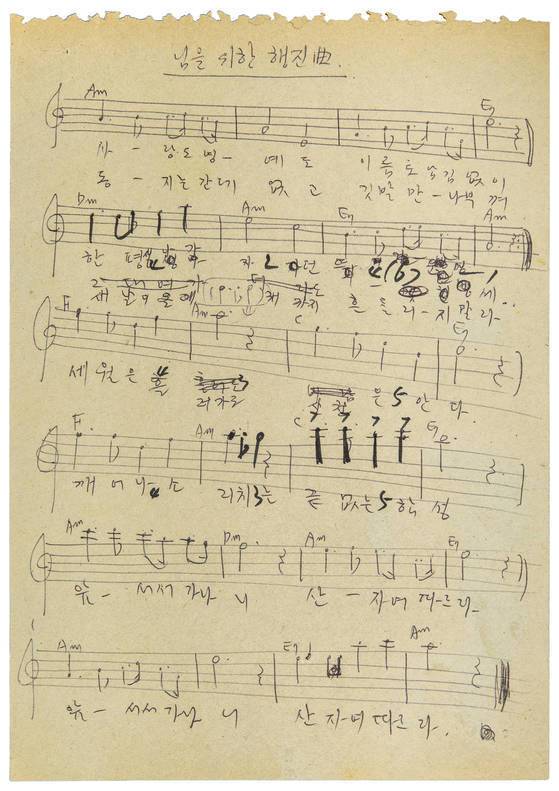 님을 위한 행진曲.
Am E7
사 - 랑도 명 - 예도 이름도 남김 없이
동 - 지는 간데 없고 깃발만 - 나부껴
Dm Am E7 Am
한 평생 나가자던
새 날이 올 때 까지 흔들리 - 지 말라
F Am C E7
세월은 흘
러가도 은 안다
F Am C E7
깨어나 소리치는 끝 없는 함성
Am Dm Am E7
앞 - 서서 가나니 산 - 자여 따르라
Am E7 Am
앞 - 서서 가나니 산 자여 따르라.